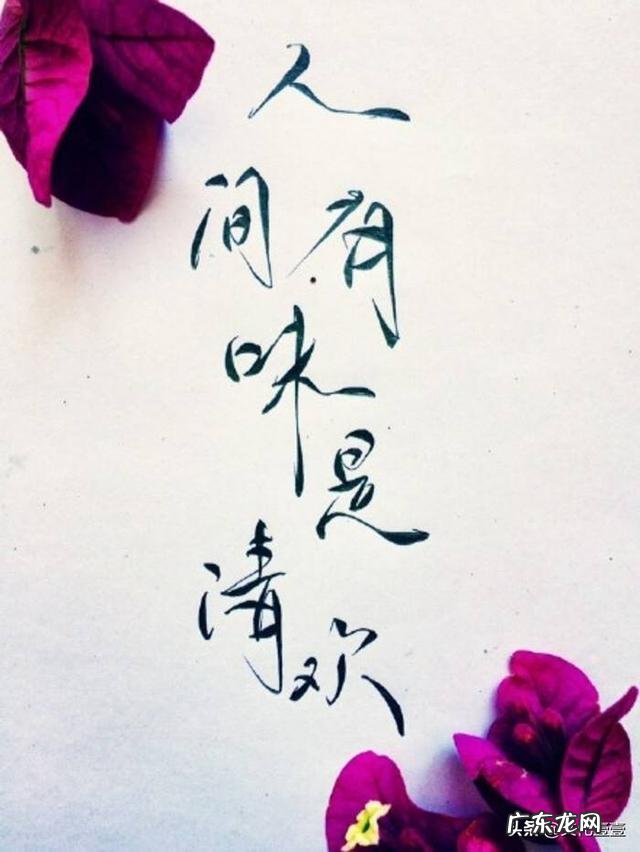 人
间有
味是
清欢
广东龙网